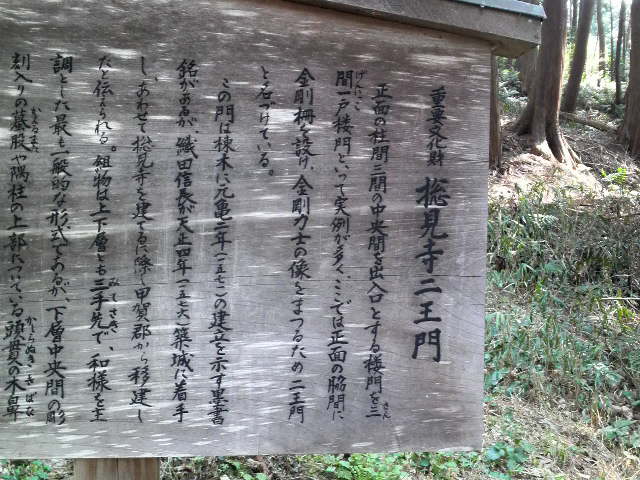 重要文化財 摠見寺二王門
正面の柱間三間の中央間を出入口とする楼門を三
間一戸楼門といって実例が多く、ここでは正面の脇間に
金剛柵を設け、金剛力士の像をまつるため二王門
と名づけている。
この門は棟木に元亀二年(一五七一)の建立を示す墨書
銘があるが、織田信長が天正四年(一五七六)築城に着手
し、あわせて摠見寺を建てる際、甲賀郡から移建し
たと伝えられる。組物は上下層とも三手先で、和様を主
調とした最も一般的な形式であるが、下層中央間の彫
刻入りの蟇股や隅柱の上部についている頭貫の木鼻